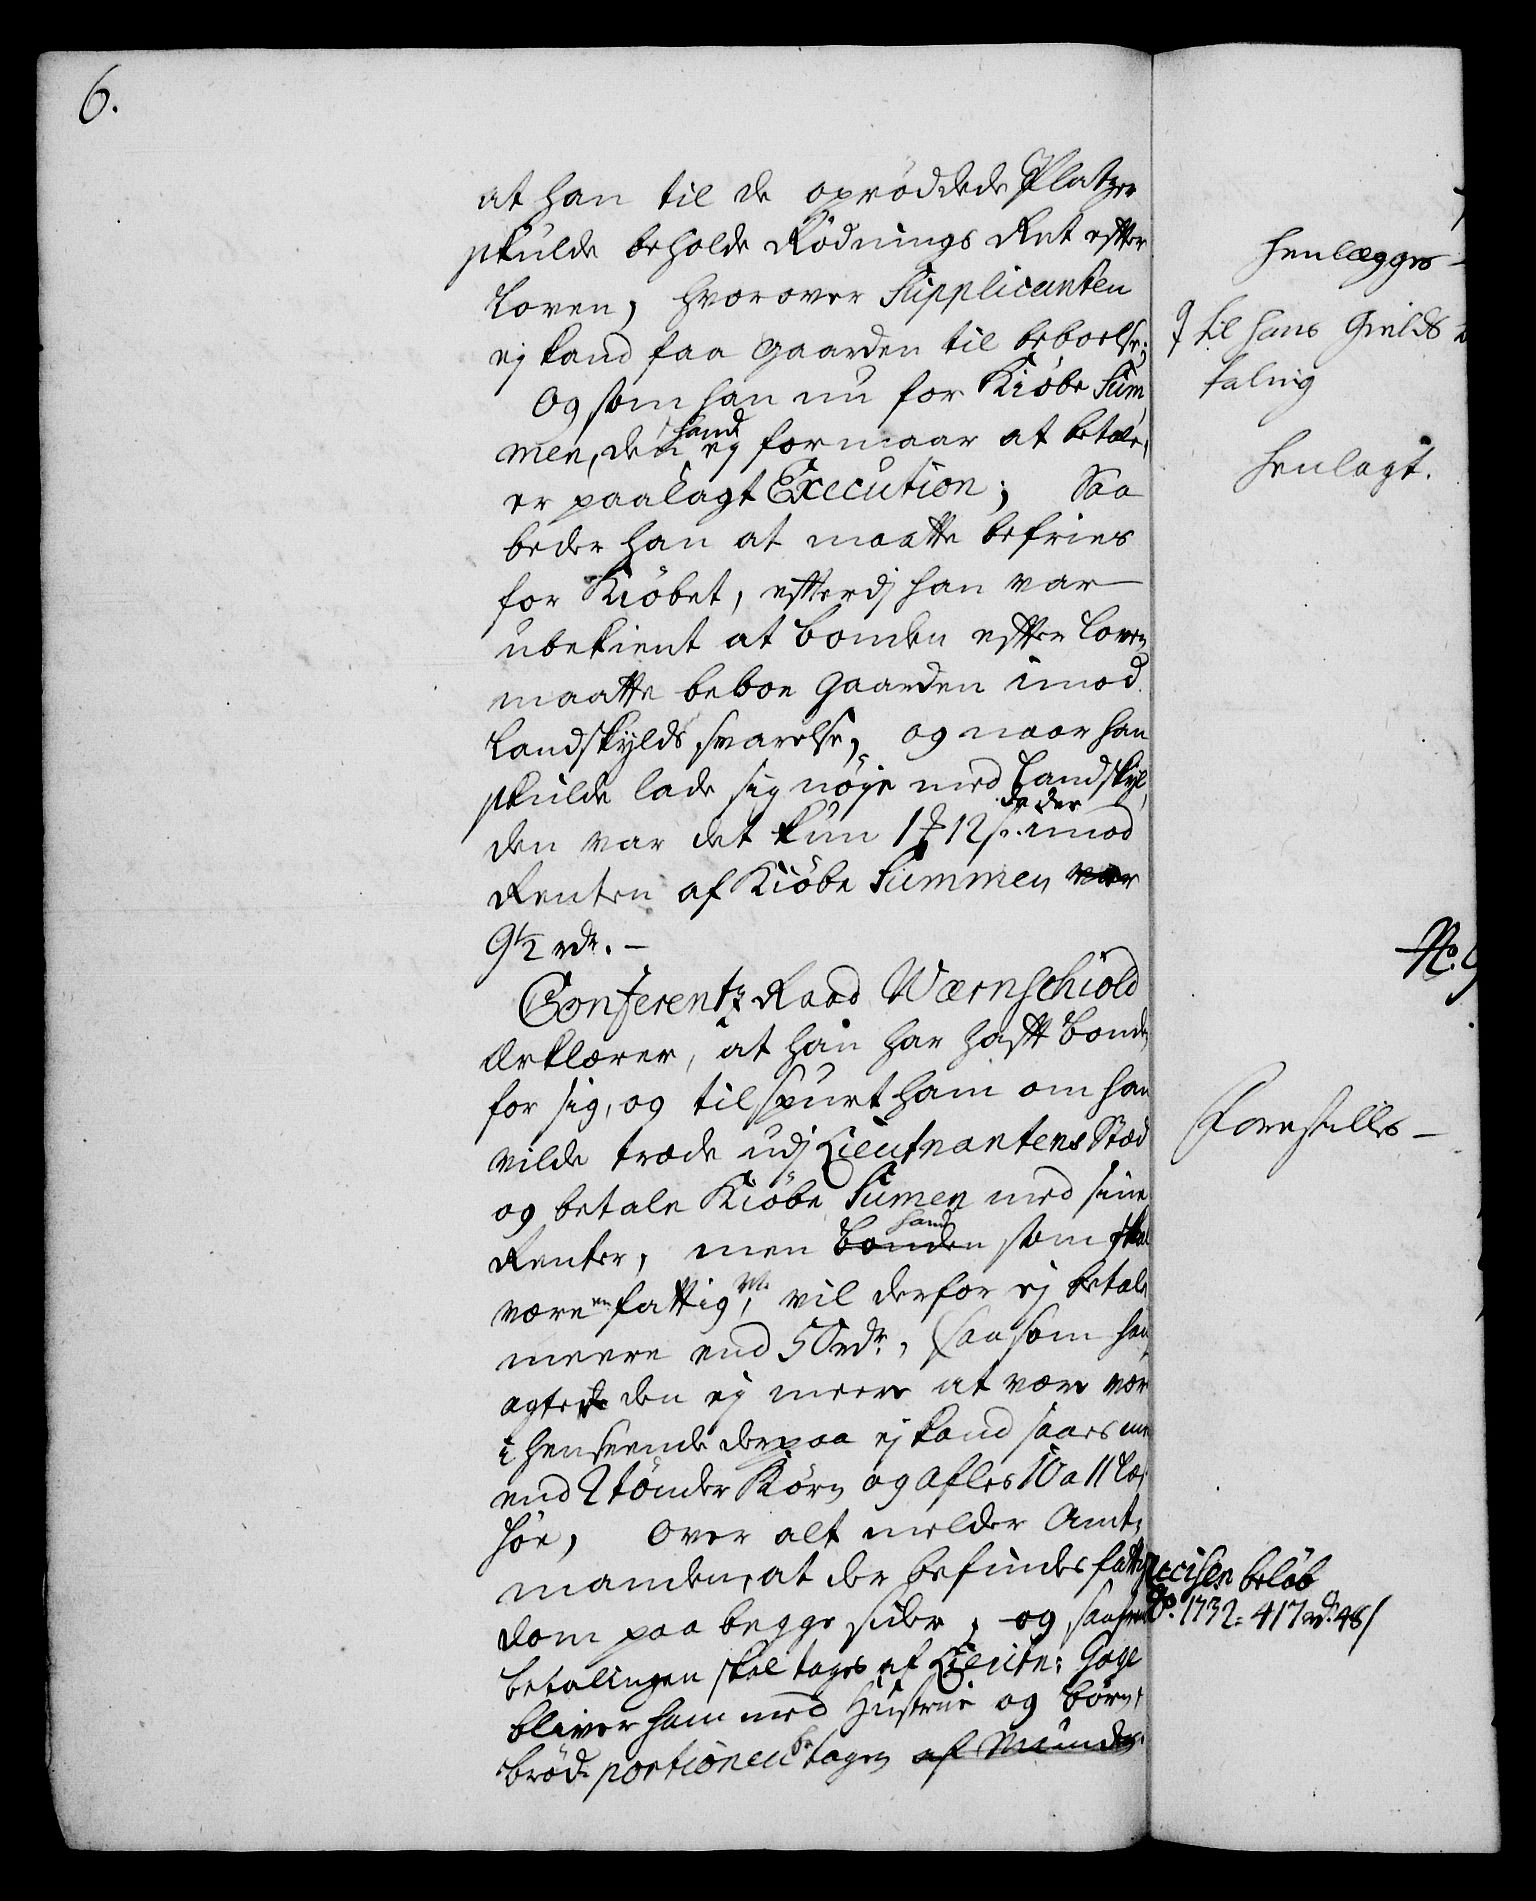 6.
at han til de oprøddede Platzer
skulde beholde Rødnings Ret efter
Loven, hvorover Supplicanten
ej kand faa gaarden til beboelse;
Og som han nu for Kiøbe Sum
men, den hand ej formaar at betale,
er paalagt Execution; Saa
beder han at maatte befries
for Kiøbet, efterdj han var
ubekient at bonden efter loven
maatte beboe gaarden imod
Landskylds svarelse, og naar han
skulde lade sig nøje med Landskyl,
den var det kun 1 12 s. da der imod
Renten af Kiøbe Summen var
9½ rdr. –
Conferentz Raad Wærnschiold
Erklærer, at han har haft bonden
for sig, og tilspurt ham om han
vilde træde udj Lieutnantens Stæd
og betale Kiøbe Sumen med sine
Renter, men bonden hand som skal
være en fattig, vil derfor ej betale
meere end 50 rdr., saasom han
agtede den ej meere at være vær
i henseende derpaa ej kand saaes me
end 2 tønder Korn og afles 10 a 11 læs
høe, Over alt melder Amt,
manden, at der befindes fattig
dom paa begge sider, og saafremt
betalingen skal tages af Lieutn: Gage
bliver ham med Hustrue og børn,
brød portionen betagen af Munden.
henlægges –
til hans Gields be
taling
henlagt.
No. 9
Forestilles –
ecisen beløb
do. 1732 = 417 rdr. 48 s